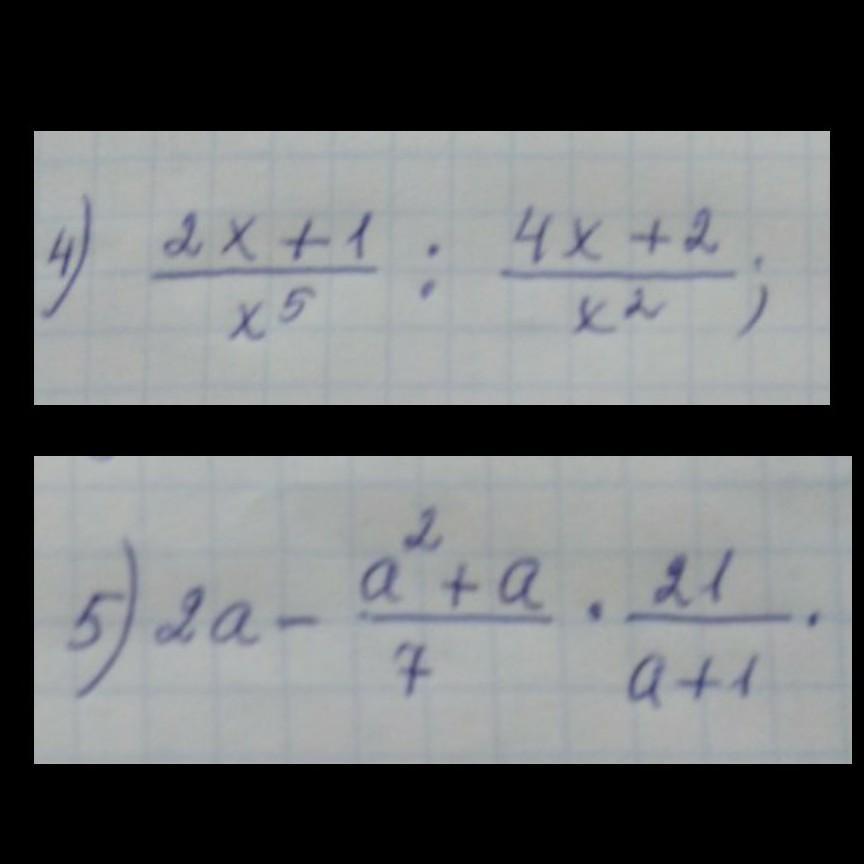 4) \frac{2x+1}{x^5} : \frac{4x+2}{x^2};
5) 2a - \frac{a^2+a}{7} · \frac{21}{a+1}.